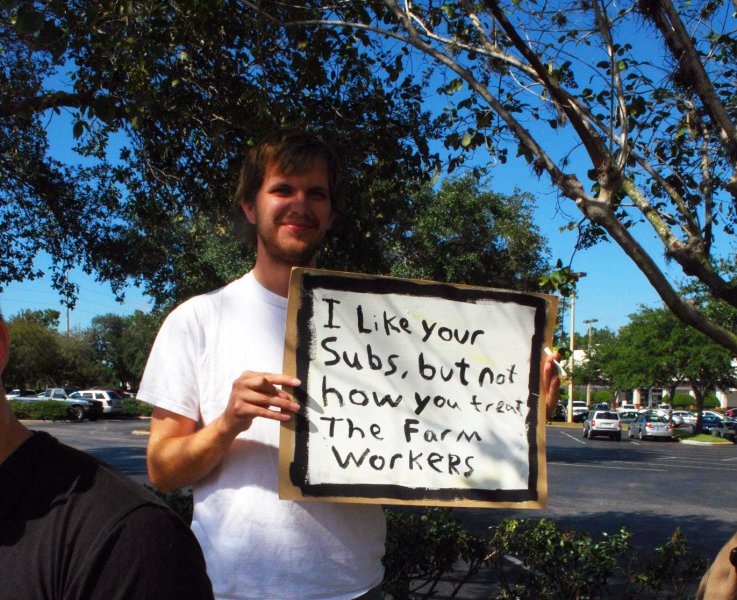 I Like your
Subs, but not
how you treat
The Farm
Workers